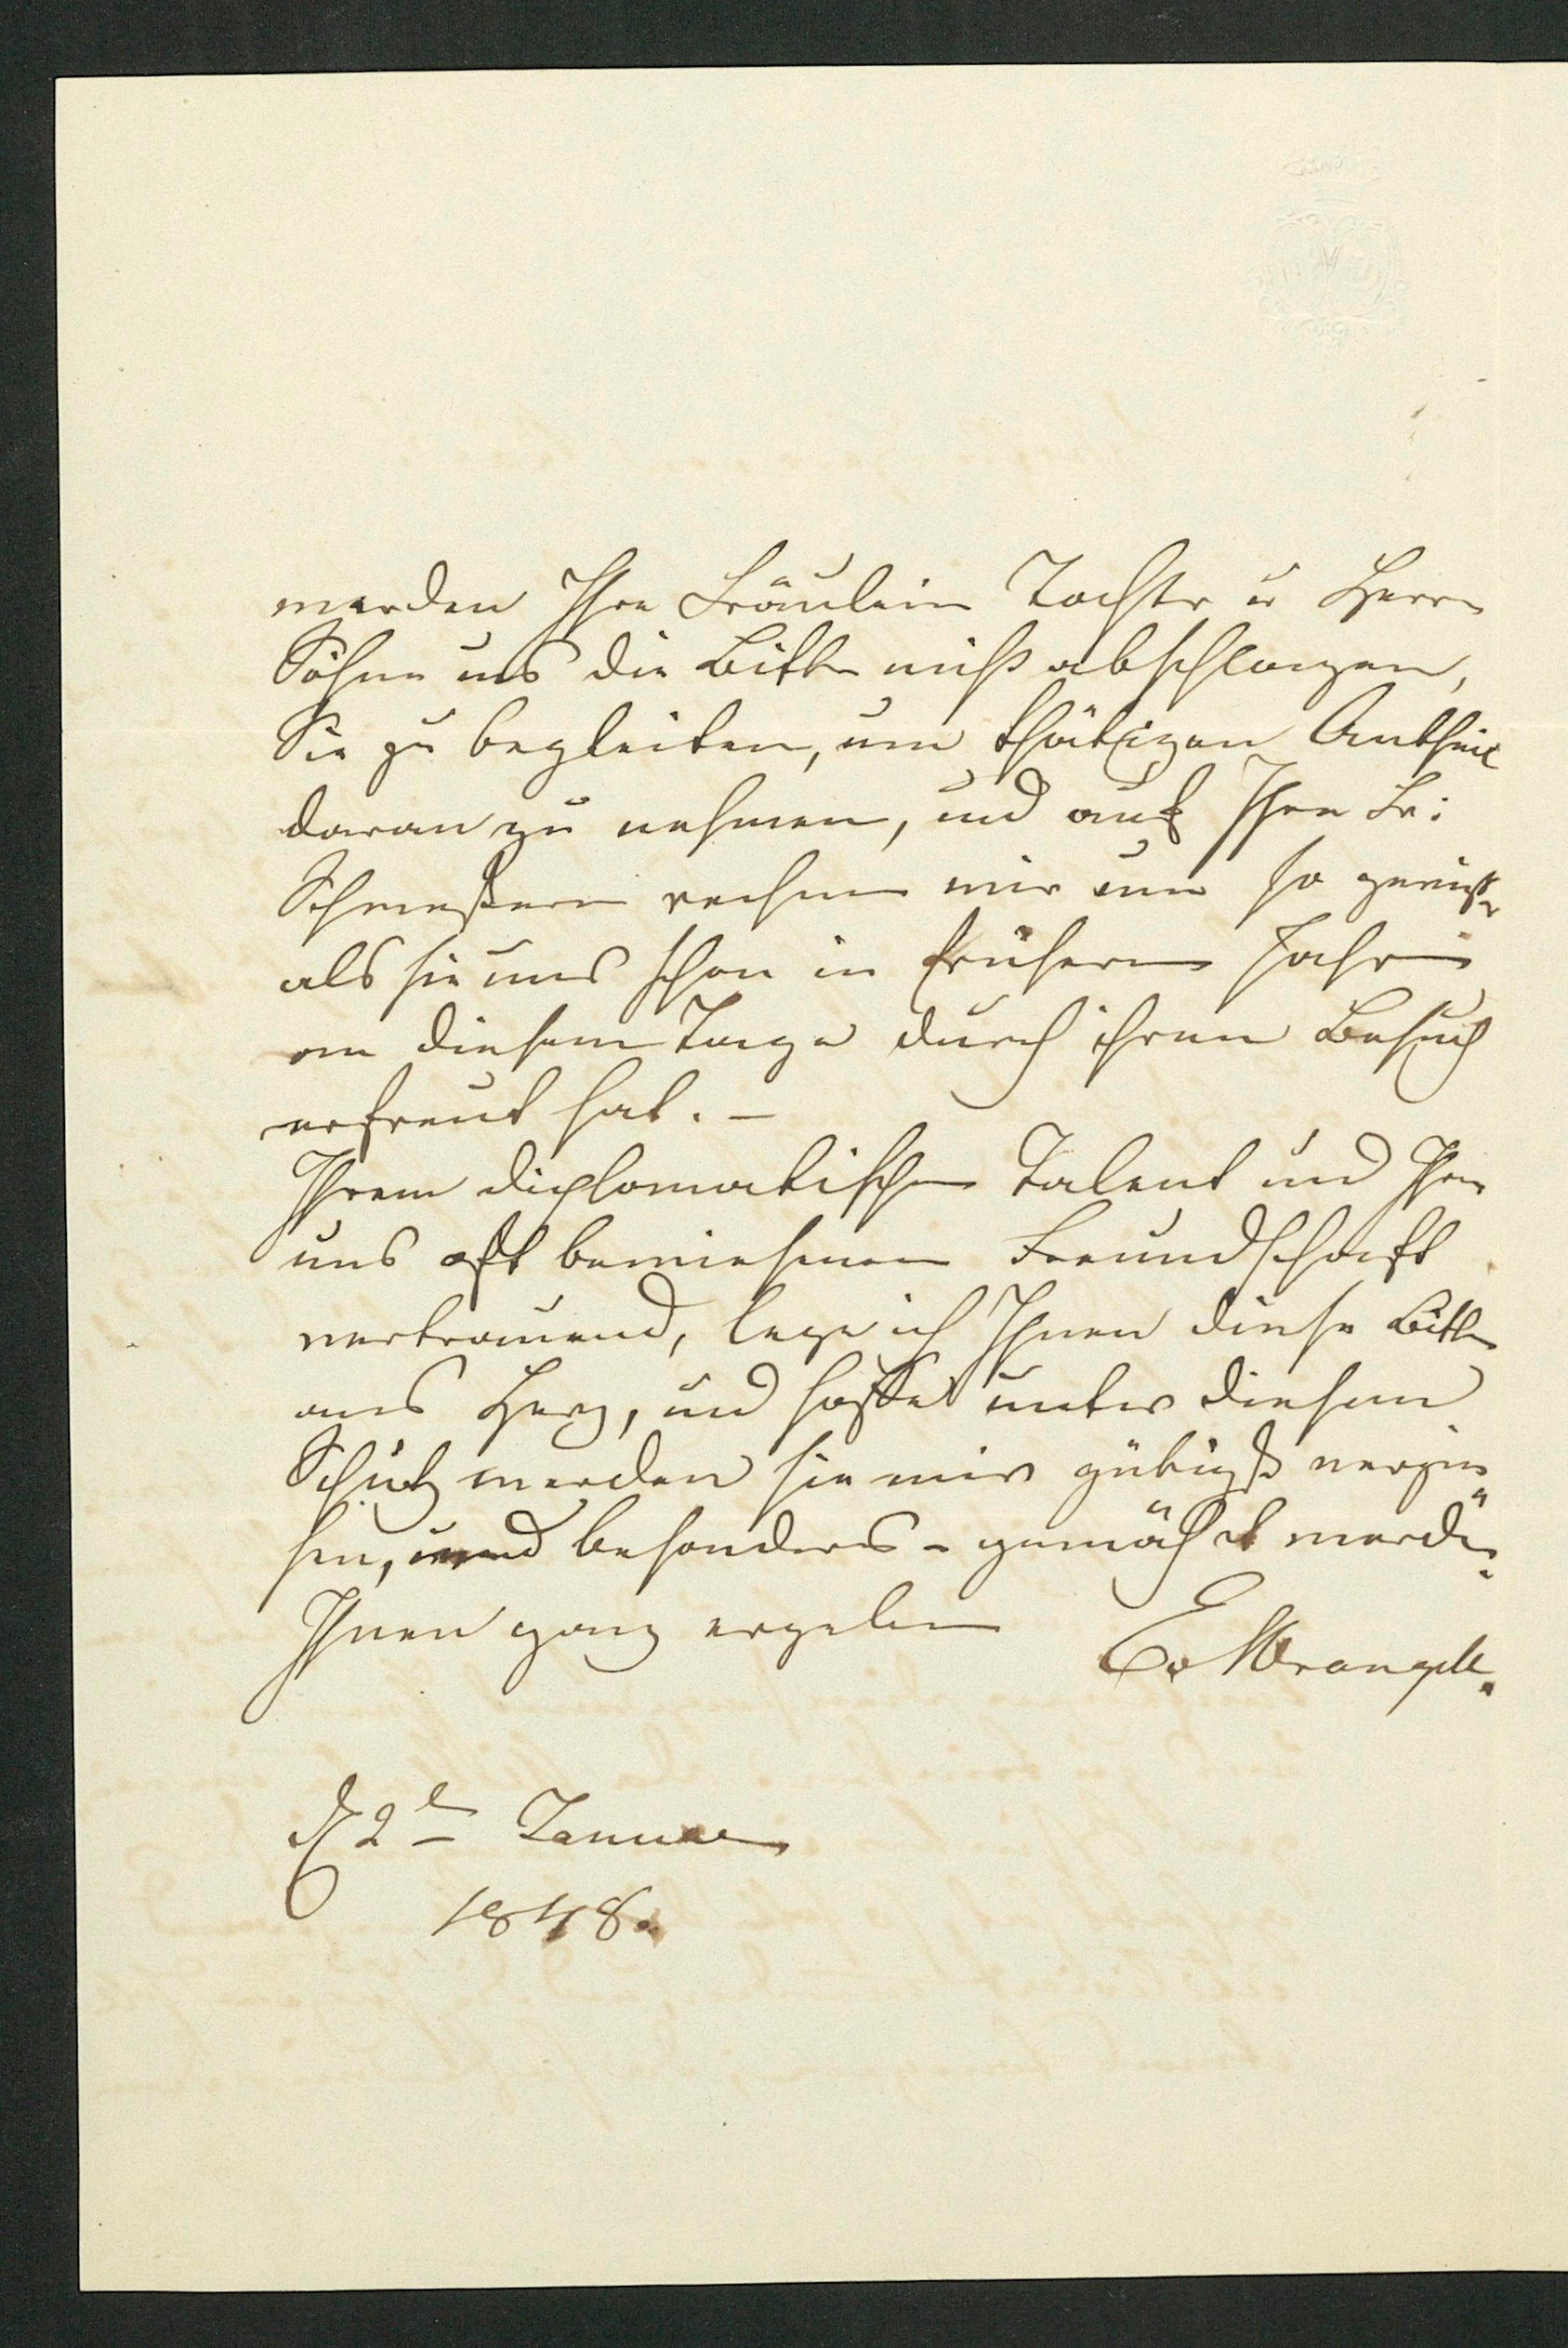 werden Ihre Fräulein Tochter u Herrn
Söhne uns die Bitte nicht abschlagen,
Sie zu begleiten, um thätigen Antheil
daran zu nehmen, und auf Ihre Fr:
Schwestern rechnen wir um so gewisser
als sie uns schon in frühern Jahren
an diesem Tage durch ihren Besuch
erfreut hat. –
Ihrem diplomatischen Talent und Ihrer
uns oft bewiesenen Freundschaft
vertrauend, lege ich Ihnen diese Bitte
ans Herz, und hoffe unter diesem
Schutz werden sie mir gütigst verzie„
hen, und besonders - gewährt werden.
Ihnen ganz ergeben
E v Wrangell.
d 2t Januar
1848.